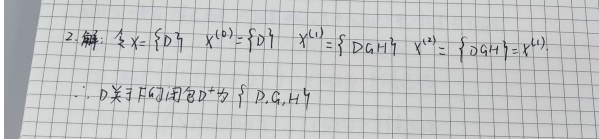 2.解: 令X={D} X⁽⁰⁾={D} X⁽¹⁾={DGH} X⁽²⁾={DGH}=X⁽¹⁾.
∴ D关于F的闭包D⁺为{D.G,H}